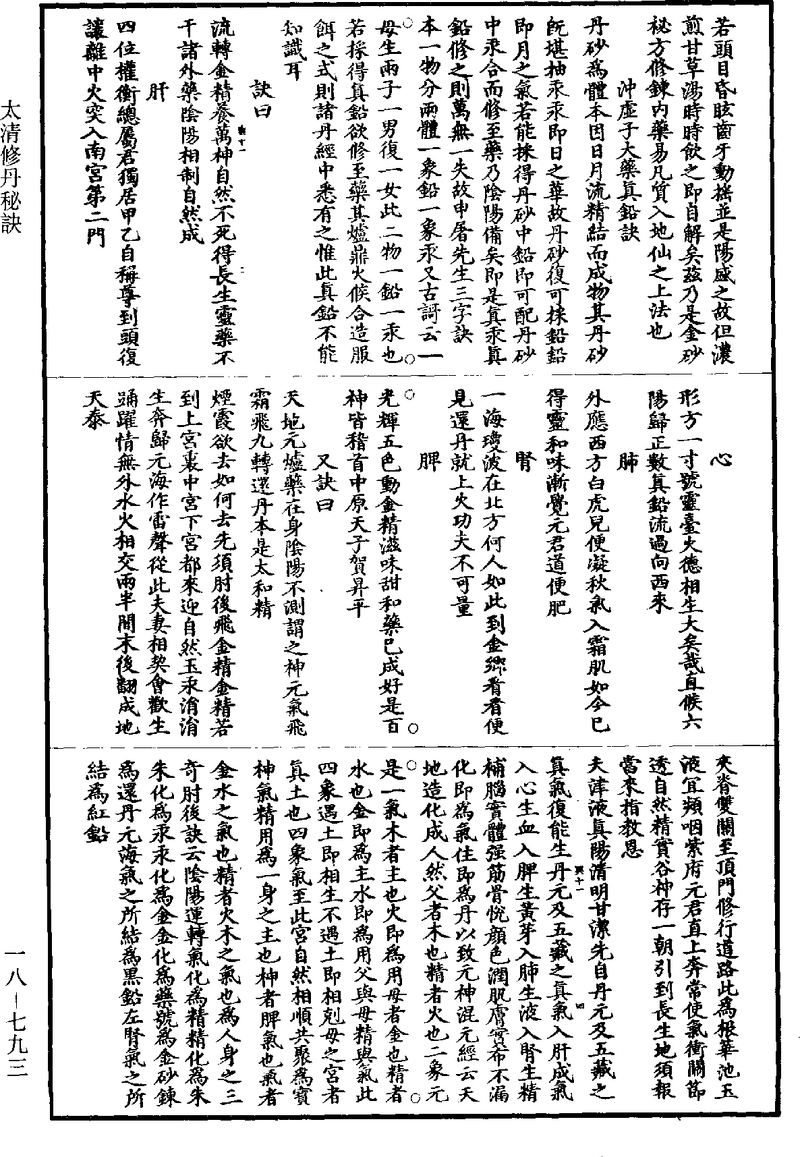 太清修丹秘訣
若頭目昏眩齒牙動搖並是陽盛之故但濃
煎甘草湯時時飲之即自解矣茲乃是金砂
祕方修鍊内藥易凡質入地仙之上法也
冲虛子大藥真鉛訣
丹砂為體本因日月流精結而成物其丹砂
旣堪抽汞汞即日之華故丹砂復可採鉛鉛
即月之氣若能採得丹砂中鉛即可配丹砂
中汞合而修至藥乃陰陽備矣即是真汞真
鉛修之則萬無一失故申屠先生三字訣
本一物分兩體一象鉛一象汞又古謌云一
母生兩子一男復一女此二物一鉛一汞也
若採得真鉛欲修至藥其爐鼎火候合造服
餌之式則諸丹經中悉有之惟此真鉛不能
知識耳
訣曰
流轉金精養萬神自然不死得長生靈藥不
干諸外藥陰陽相制自然成
肝
四位權衡總屬君獨居甲乙自稱尊到頭復
讓離中火突入南宮第二門
心
形方一寸號靈臺火德相生大矣哉直候六
陽歸正數真鉛流過向西來
肺
外應西方白虎兒便凝秋氣入霜肌如今已
得靈和味漸覺元君道便肥
腎
一海瓊波在北方何人如此到金鄉看看便
見還丹就上火功夫不可量
脾
光輝五色動金精滋味甜和藥已成好是百
神皆稽首中原天子賀昇平
又訣曰
天地元爐藥在身陰陽不測謂之神元氣飛
霜飛九轉還丹本是太和精
煙霞欲去如何去先須肘後飛金精金精若
到上宮裏中宮下宮都來迎自然玉汞涓涓
生奔歸元海作雷聲從此夫妻相契會歡生
踊躍情無外水火相交兩半間末後翻成地
天泰
夾脊雙關至頂門修行道路此為根華池玉
液冝頻咽紫府元君直上奔常使氣衝關節
透自然精實谷神存一朝引到長生地須報
當來指教恩
夫津液真陽清明甘潔先自丹元及五藏之
真氣復能生丹元及五藏之真氣入肝成氣
入心生血入脾生黃芽入肺生液入腎生精
補腦實體强筋骨悅顏色潤肌膚實希不漏
化即為氣住即為丹以致元神混元經云天
地造化成人然父者木也精者火也二象元
是一氣木者主也火即為用母者金也精者
水也金即為主水即為用父與母精與氣此
四象遇土即相生不遇土即相剋母之宮者
真土也四象氣至此宮自然相順共聚為實
神氣精用為一身之主也神者脾氣也氣者
金水之氣也精者火木之氣也為人身之三
奇肘後訣云陰陽運轉氣化為精精化為朱
朱化為汞汞化為金金化為藥號為金砂鍊
為還丹元海氣之所結為黑鉛左腎氣之所
結為紅鉛
一八－七九三